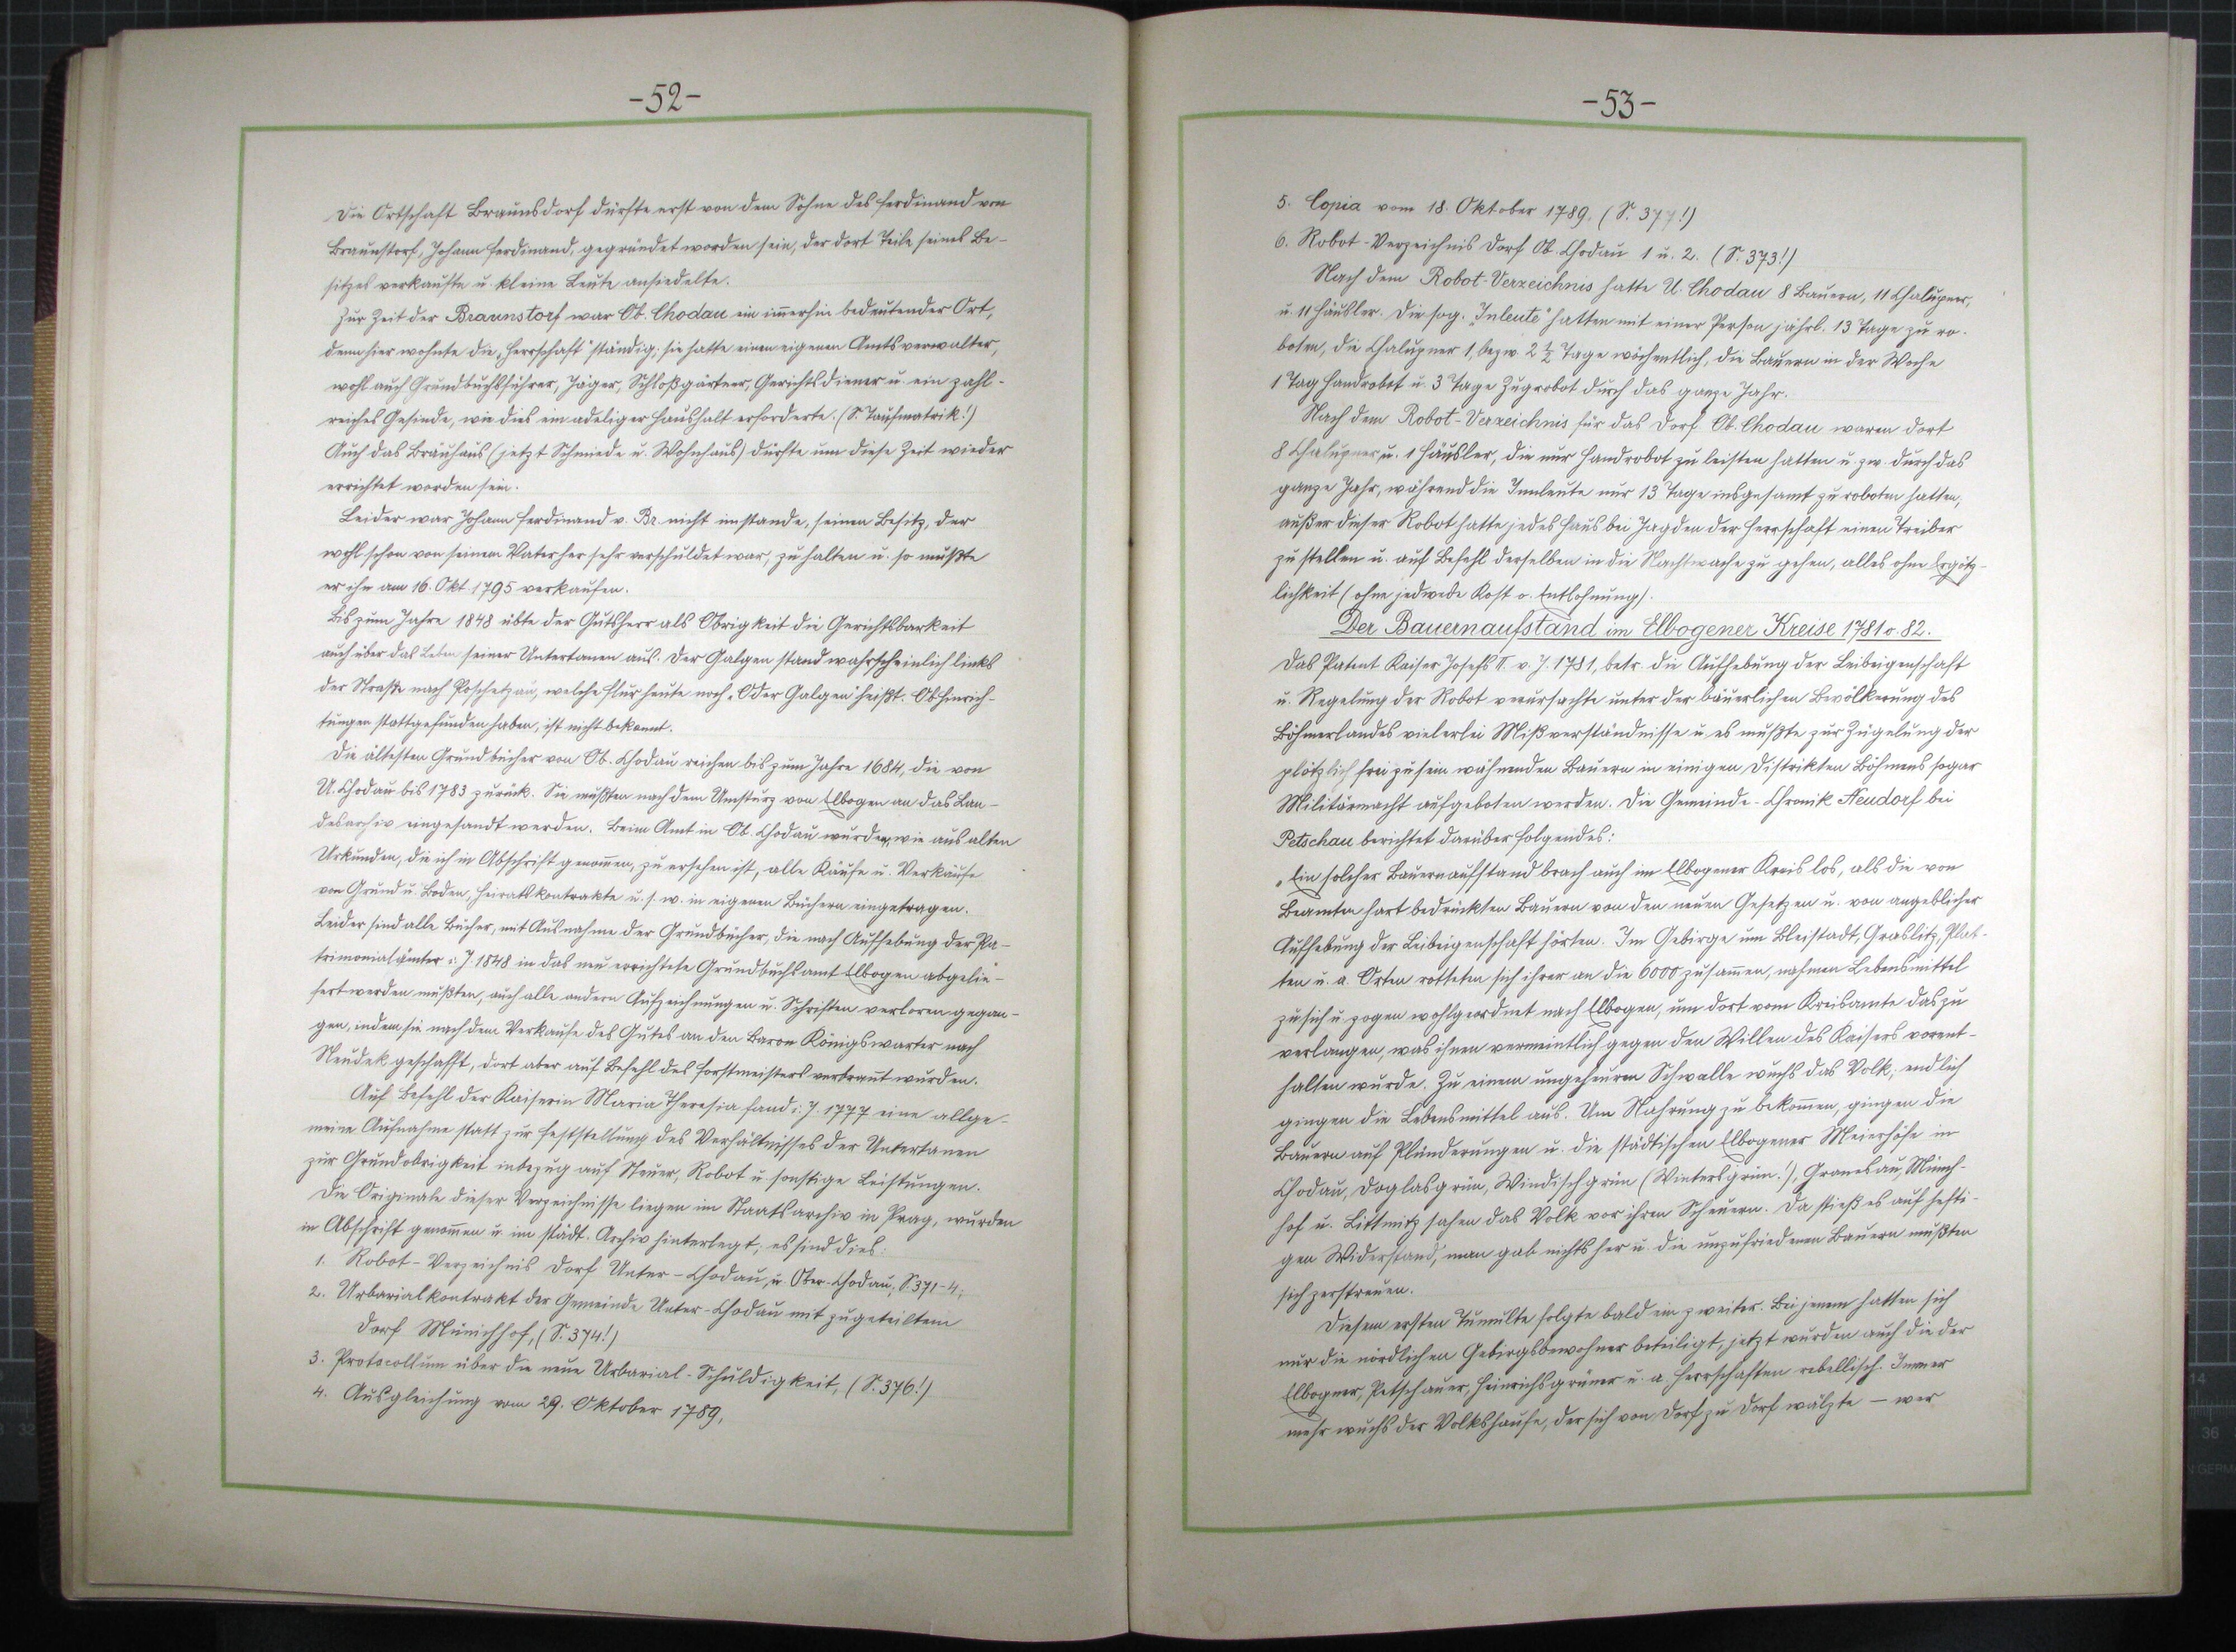 -52-
Die Ortschaft Braunsdorf dürfte erst von dem Sohne des Ferdinand von
Braunstorf, Johann Ferdinand, gegründet worden sein, der dort Teile seines Be-
sitzes verkaufte u. kleine Leute ansiedelte.
Zur Zeit der Braunstorf war Ob. Chodau ein im̄erhin bedeutender Ort,
denn hier wohnte die „Herrschaft" ständig; sie hatte einen eigenen Amtsverwalter,
wohl auch Grundbuchsführer, Jäger, Schloßgärtner, Gerichtsdiener u. ein zahl-
reiches Gesinde, wie dies ein adeliger Haushalt erforderte. (S. Taufmatrik!)
Auch das Bräuhaus (jetzt Schmiede u. Wohnhaus) dürfte um diese Zeit wieder
errichtet worden sein.
Leider war Johann Ferdinand v. Br. nicht imstande, seinen Besitz, der
wohl schon von seinem Vater her sehr verschuldet war, zu halten u. so mußte
er ihn am 16. Okt 1795 verkaufen.
Bis zum Jahre 1848 übte der Gutsherr als Obrigkeit die Gerichtsbarkeit
auch über das Leben seiner Untertanen aus. Der Galgen stand wahrscheinlich links
der Straße nach Poschetzau, welche Flur heute noch „Oder Galgen" heißt. Ob Hinrich-
tungen stattgefunden haben, ist nicht bekannt.
Die ältesten Grundbücher von Ob. Chodau reichen bis zum Jahre 1684, die von
U. Chodau bis 1783 zurück. Sie mußten nach dem Umsturz von Elbogen an das Lan-
desarchiv eingesandt werden. Beim Amt in Ob. Chodau wurden, wie aus alten
Urkunden, die ich in Abschrift genom̄en, zu ersehen ist, alle Käufe u. Verkäufe
von Grund u. Boden, Heiratskontrakte u. s. w. in eigenen Büchern eingetragen.
Leider sind alle Bücher, mit Ausnahme der Grundbücher, die nach Aufhebung der Pa-
trimonialämter i. J. 1848 in das neu errichtete Grundbuchsamt Elbogen abgelie-
fert werden mußten, auch alle andern Aufzeichnungen u. Schriften verloren gegan-
gen, indem sie nach dem Verkaufe des Gutes an den Baron Königswarter nach
Neudek geschafft, dort aber auf Befehl des Forstmeisters verbrannt wurden.
Auf Befehl der Kaiserin Maria Theresia fand i. J. 1777 eine allge-
meine Aufnahme statt zur Feststellung des Verhältnisses der Untertanen
zur Grundobrigkeit inbezug auf Steuer, Robot u. sonstige Leistungen.
Die Originale dieser Verzeichnisse liegen im Staatsarchiv in Prag, wurden
in Abschrift genom̄en u. im städt. Archiv hinterlegt; es sind dies:
1. Robot-Verzeichnis Dorf Unter-Chodau, u. Ober-Chodau, S. 371-4;
2. Urbarialkontrakt der Gemeinde Unter-Chodau mit zugeteiltem
Dorf Münichhof, (S. 374!)
3. Protocollum über die neue Urbarial-Schuldigkeit, (S. 376!)
4. Ausgleichung vom 29. Oktober 1789,
-53-
5. Copia vom 18. Oktober 1789. (S. 377!)
6. Robot-Verzeichnis Dorf Ob. Chodau 1 u. 2. (S. 373!)
Nach dem Robot-Verzeichnis hatte U. Chodau 8 Bauern, 11 Chalupner,
u. 11 Häusler. Die sog. „Inleute" hatten mit einer Person jährl. 13 Tage zu ro-
boten, die Chalupner 1, bezw. 2 ½ Tage wöchentlich, die Bauern in der Woche
1 Tag Handrobot u. 3 Tage Zugrobot durch das ganze Jahr.
Nach dem Robot-Verzeichnis für das Dorf Ob. Chodau waren dort
8 Chalupner u. 1 Häusler, die nur Handrobot zu leisten hatten u. zw. durch das
ganze Jahr, während die Innleute nur 13 Tage insgesamt zu roboten hatten;
außer dieser Robot hatte jedes Haus bei Jagden der Herrschaft einen Treiber
zu stellen u. auf Befehl derselben in die Nachtwache zu gehen, alles ohne Ergötz-
lichkeit (ohne jedwede Kost o. Entlohnung).
Der Bauernaufstand im Elbogener Kreise 1781 o. 82.
Das Patent Kaiser Josefs II. v. J. 1781, betr. die Aufhebung der Leibeigenschaft
u. Regelung der Robot verursachte unter der bäuerlichen Bevölkerung des
Böhmerlandes vielerlei Mißverständnisse u. es mußte zur Zügelung der
plötzlich frei zu sein wähnenden Bauern in einigen Distrikten Böhmens sogar
Militärmacht aufgeboten werden. Die Gemeinde-Chronik Neudorf bei
Petschau berichtet darüber folgendes:
„Ein solcher Bauernaufstand brach auch im Elbogener Kreis los, als die von
Beamten hart bedrückten Bauern von den neuen Gesetzen u. von angeblicher
Aufhebung der Leibeigenschaft hörten. Im Gebirge um Bleistadt, Graslitz, Plat-
ten u. a. Orten rotteten sich ihrer an die 6000 zusam̄en, nahmen Lebensmittel
zu sich u. zogen wohlgeordnet nach Elbogen, um dort vom Kreisamte das zu
verlangen, was ihnen vermeintlich gegen den Willen des Kaisers vorent-
halten wurde. Zu einem ungeheuren Schwalle wuchs das Volk; endlich
gingen die Lebensmittel aus. Um Nahrung zu bekom̄en, gingen die
Bauern auf Plünderungen u. die städtischen Elbogener Meierhöfe in
Chodau, Doglasgrün, Windischgrün (Wintersgrün!), Granesau, Münch-
hof u. Littmitz sahen das Volk vor ihren Scheuern. Da stieß es auf hefti-
gen Widerstand, man gab nichts her u. die unzufriedenen Bauern mußten
sich zerstreuen.
Diesem ersten Tumulte folgte bald ein zweiter. Bei jenem hatten sich
nur die nördlichen Gebirgsbewohner beteiligt, jetzt wurden auch die der
Elbogner, Petschauer, Heinrichsgrüner u. a. Herrschaften rebellisch. Immer
mehr wuchs der Volkshaufe, der sich von Dorf zu Dorf wälzte — wer